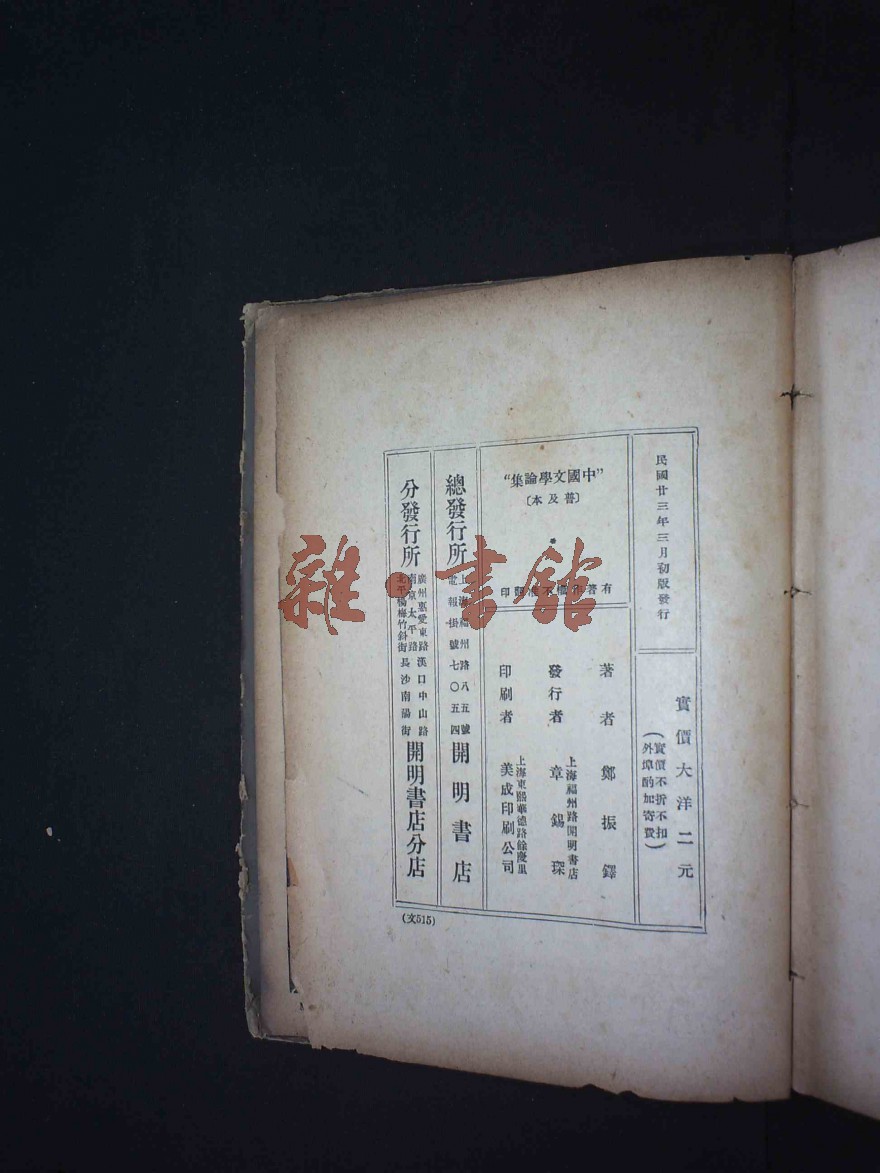 民國廿三年三月初版發行
實價大洋二元
(實價不折不扣
外埠酌加寄費)
“中國文學論集”
〔普及本〕
有著作權不准翻印
著者 鄭振鐸
發行者 上海福州路開明書店
章錫琛
印刷者 上海東熙華德路餘慶里
美成印刷公司
總發行所 上海福州路八五號
電報掛號七〇五四
開明書店
分發行所 廣州惠愛東路 漢口中山路
南京太平路
北平楊梅竹斜街 長沙南陽街
開明書店分店
(文515)
雜·書館